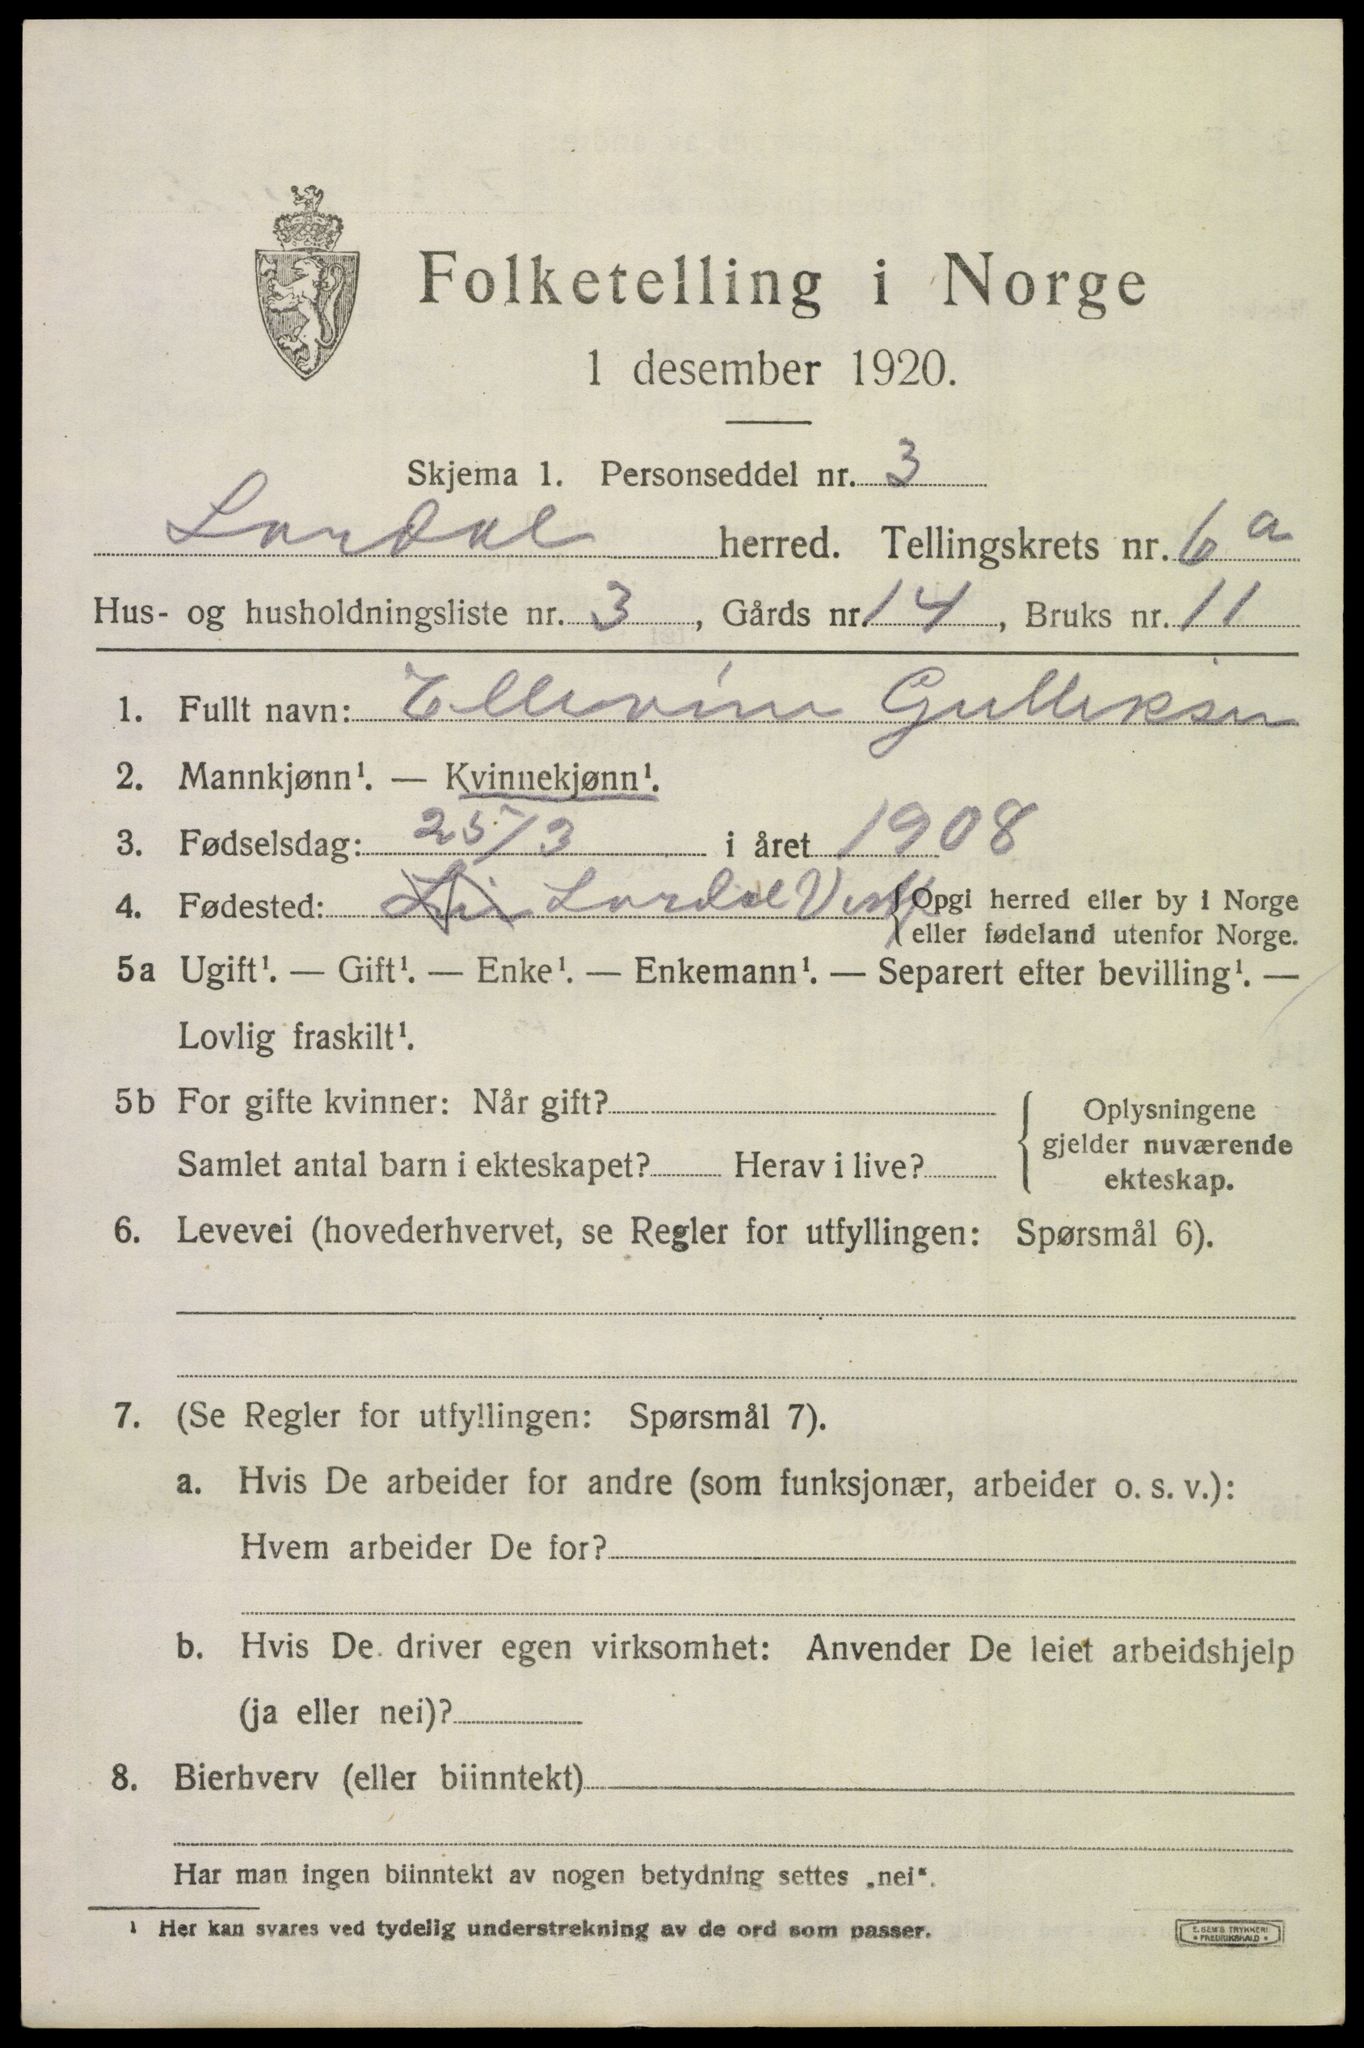 Folketelling i Norge
1 desember 1920.
Skjema 1. Personseddel nr. 3
Lardal herred. Tellingskrets nr. 6a
Hus- og husholdningsliste nr. 3, Gårds nr. 14, Bruks nr. 11
1. Fullt navn: Ellevine Gulliksen
2. Mannkjønn¹. — Kvinnekjønn¹.
3. Fødselsdag: 25/3 i året 1908
4. Fødested: Lardal Vestf { Opgi herred eller by i Norge
eller fødeland utenfor Norge.
5a Ugift¹. — Gift¹. — Enke¹. — Enkemann¹. — Separert efter bevilling¹. —
Lovlig fraskilt¹.
5b For gifte kvinner: Når gift?
Samlet antal barn i ekteskapet? Herav i live?
{ Oplysningene
gjelder nuværende
ekteskap.
6. Levevei (hovederhvervet, se Regler for utfyllingen: Spørsmål 6).
7. (Se Regler for utfyllingen: Spørsmål 7).
a. Hvis De arbeider for andre (som funksjonær, arbeider o. s. v.):
Hvem arbeider De for?
b. Hvis De driver egen virksomhet: Anvender De leiet arbeidshjelp
(ja eller nei)?
8. Bierhverv (eller biinntekt)
Har man ingen biinntekt av nogen betydning settes „nei".
¹ Her kan svares ved tydelig understrekning av de ord som passer.
E. SEM'S TRYKKERI
FREDRIKSHALD